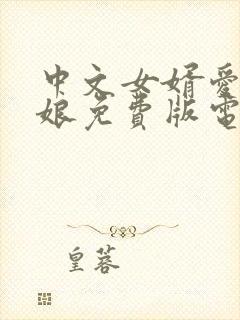 中文女婿爱
娘免費版電
皇蓉